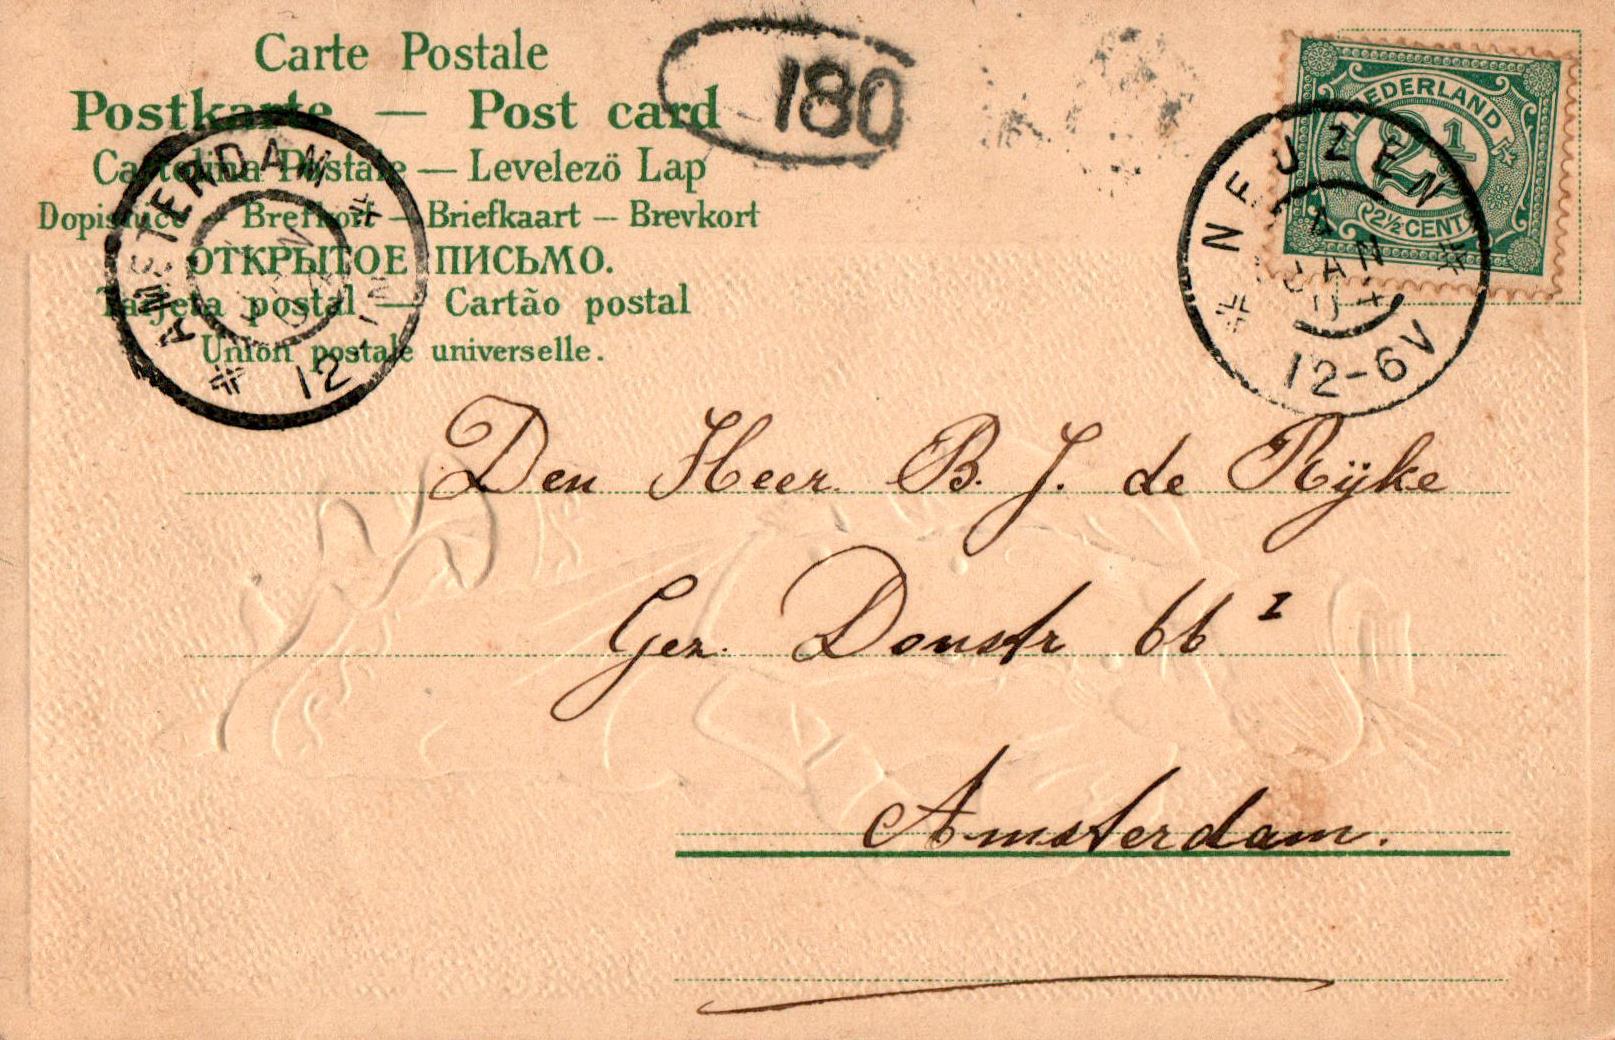 Carte Postale
Postkarte — Post card
Cartolina Postale — Levelezö Lap
Dopisnice — Brefkort — Briefkaart — Brevkort
ОТКРЫТОЕ ПИСЬМО.
Tarjeta postal — Cartão postal
Union postale universelle.
180
NEDERLAND
2½
2½ CENT
NEUZEN
4 JAN 04
12-6V
AMSTERDAM
JAN
12-1N
Den Heer B. J. de Rijke
Ger. Doustr 66 I
Amsterdam.